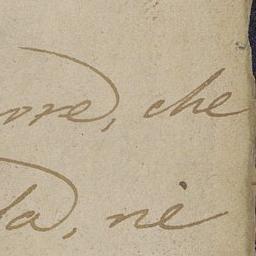 ore, che
la, nè